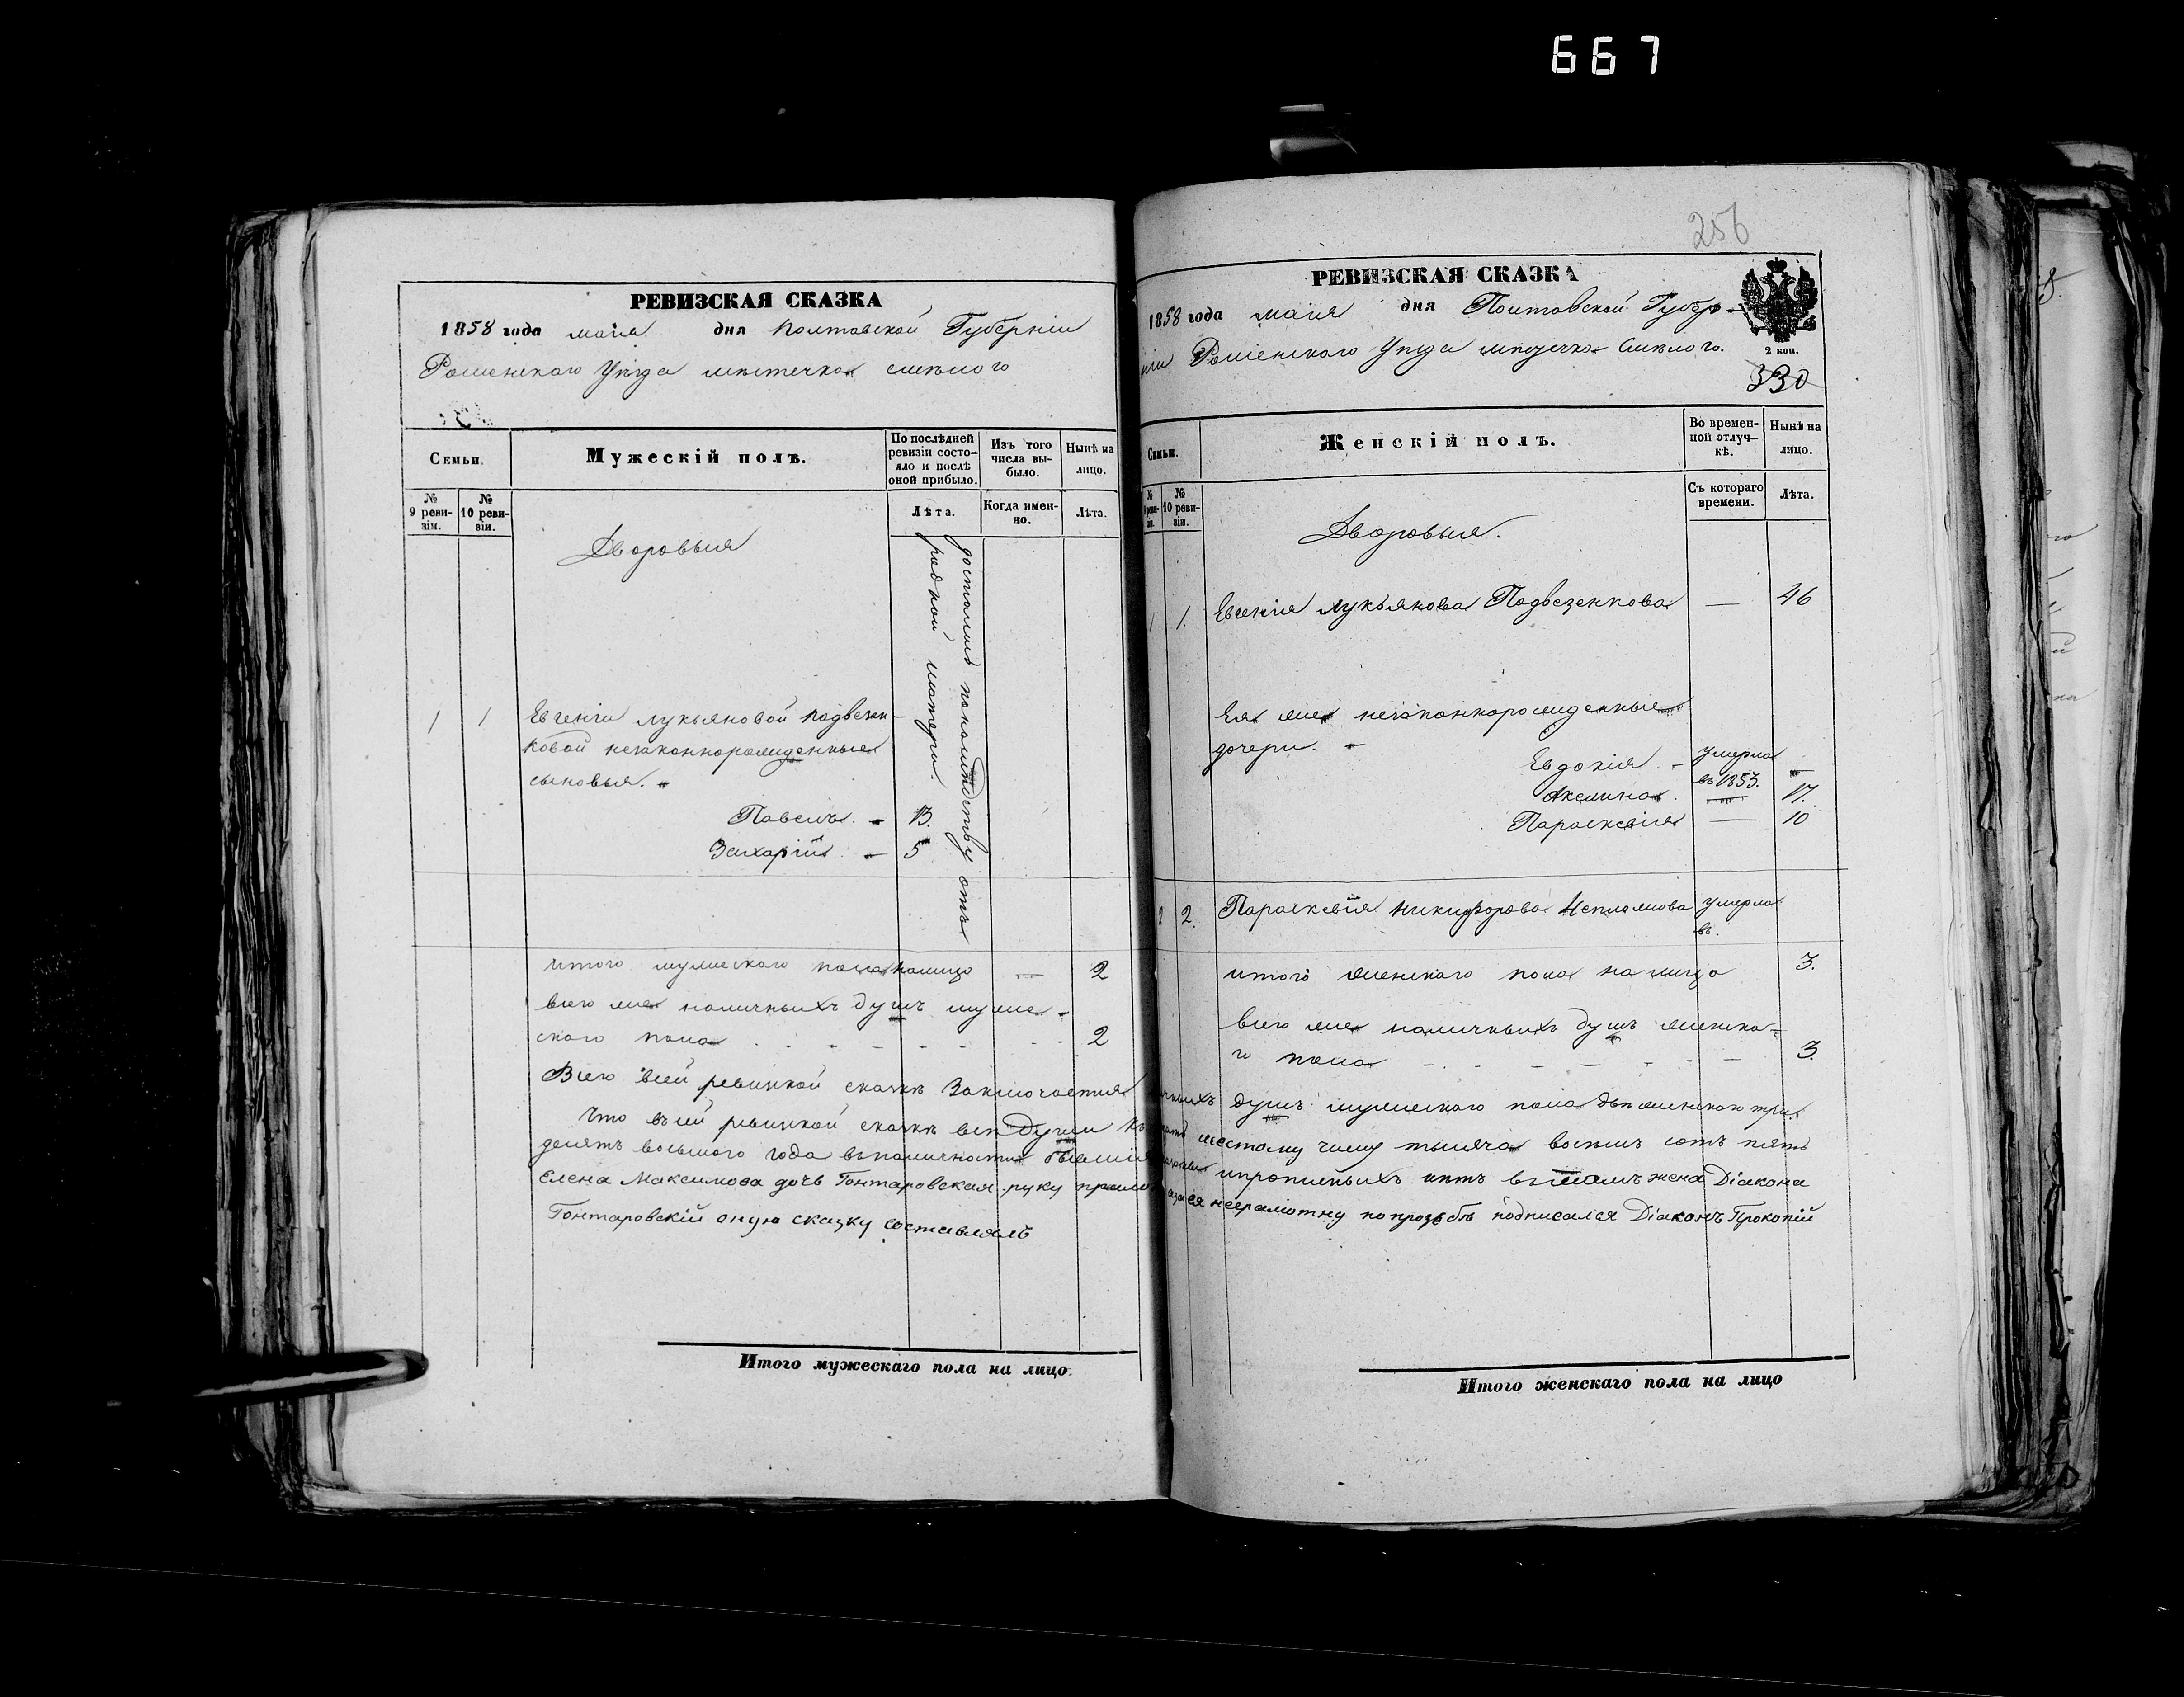 667
РЕВИЗСКАЯ СКАЗКА
1858 года маія дня Полтавской Губерніи
Роменскаго Уѣзда мѣстечка смѣлого
Семьи.
Мужескій полъ.
По послѣдней ревизіи состояло и послѣ оной прибыло.
Изъ того числа выбыло.
Нынѣ на лицо.
№ 9 ревизіи.
№ 10 ревизіи.
Лѣта.
Когда именно.
Лѣта.
Дворовыя
достались по наслѣдству отъ
родной матери.
1 1 Евгеніи лукьяновой подвезен-
ковой незаконнорожденные
сыновья.
Павелъ. - 13.
Захарій. - 5
итого мужескаго пола налицо — 2
всего же наличныхъ душъ муже-
скаго пола 2
Итого мужескаго пола на лицо.
256
РЕВИЗСКАЯ СКАЗКА
1858 года маія дня Полтавской Губер-
ніи Роменскаго Уѣзда мѣстечка Смѣлого.
2 коп.
330
Семьи.
Женскій полъ.
Во временной отлучкѣ.
Нынѣ на лицо.
№ 9 ревизіи.
№ 10 ревизіи.
Съ котораго времени.
Лѣта.
Дворовыя.
1 1. Евгенія лукьянова Подвезенкова — 46
Ея же незаконнорожденныя
дочери.
Евдокія. - умерла въ 1853. —
Акелина. — 17.
Параскевія — 10
2 2. Параскевія никифорова умерла
въ.
итого женскаго пола на лицо 3.
всего же наличныхъ душъ женска-
го пола 3.
Всего всей ревизкой сказкѣ Заключается душъ мужескаго пола двѣ женскаго три.
Что въ сей ревизкой сказкѣ всѣ души къ шестому числу тысяча восемь сотъ пять
десятъ восьмого года въ наличности бывшія и прописныхъ нѣтъ въ томъ жена Діакона
Елена Максимова дочь Гонтаровская руку неграмотну по прозьбѣ подписался Діаконъ Прокопій
Гонтаровскій оную сказку составлялъ
Итого женскаго пола на лицо